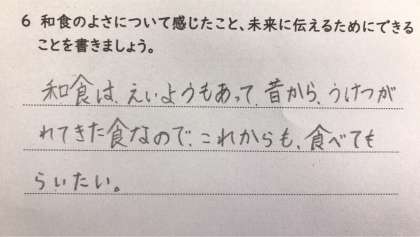 6 和食のよさについて感じたこと、未来に伝えるためにできる
ことを書きましょう。
和食は、えいようもあって、昔から、うけつが
れてきた食なので、これからも、食べても
らいたい。